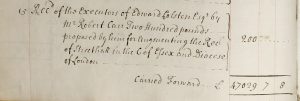 13 Rec.d of the Executors of Edward Colston Esq.r by
M.r Robert Carr Two Hundred pounds
proposed by him for augmenting the Rec.y
of in the C.o of Essex and Diocese
of London
200
Carried Forward £ 47029 7 8